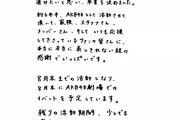 迎えたいと思い、卒業を決めました。
約6年半、AKB48として活動させて
頂いて、家族、スタッフさん、
メンバーさん、そしていつも応援
して下さっているファンの皆さんに、
本当に本当に表しきれない程の
感謝でいっぱいです。
8月末までの活動となり、
8月末にAKB48劇場での
イベントを予定しています。
残りの活動期間、少しでも